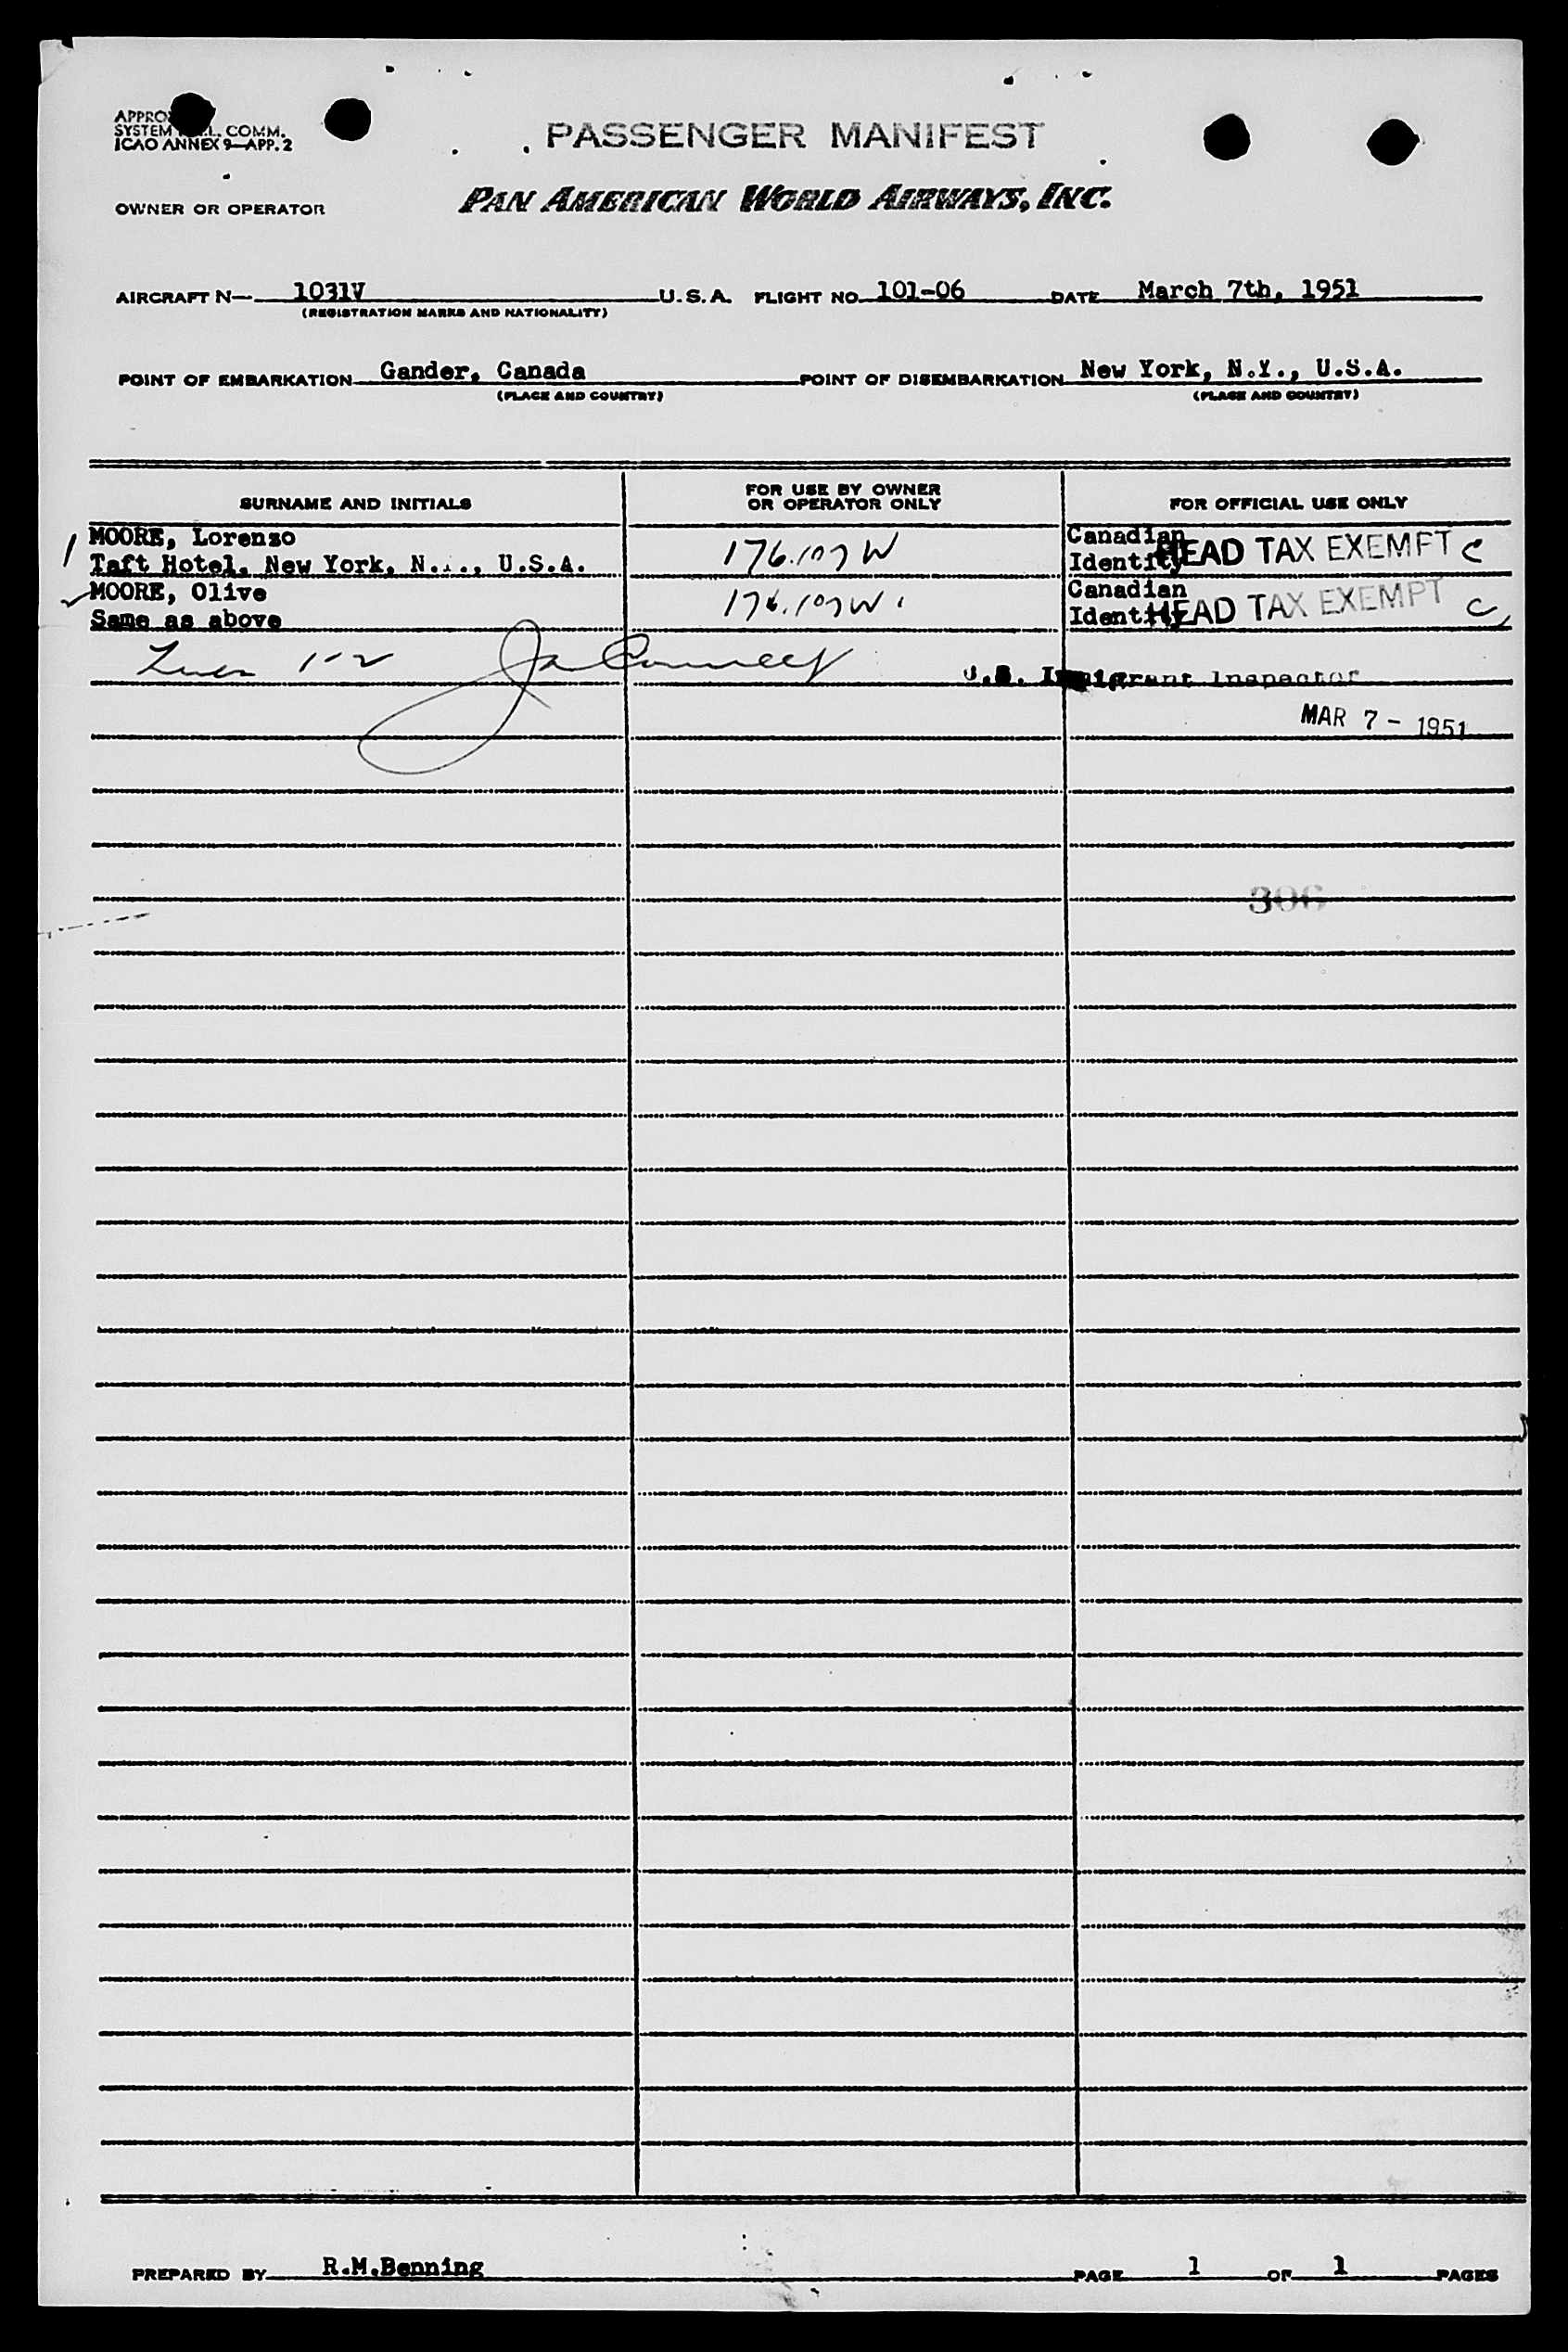 SYSTEM COMM.
ICAO ANNEX 9—APP. 2
PASSENGER MANIFEST
OWNER OR OPERATOR PAN AMERICAN WORLD AIRWAYS, INC.
AIRCRAFT N— 1031V U.S.A. FLIGHT NO. 101-06 DATE March 7th, 1951
(REGISTRATION MARKS AND NATIONALITY)
POINT OF EMBARKATION Gander, Canada POINT OF DISEMBARKATION New York, N.Y., U.S.A.
(PLACE AND COUNTRY) (PLACE AND COUNTRY)
SURNAME AND INITIALS FOR USE BY OWNER OR OPERATOR ONLY FOR OFFICIAL USE ONLY
1 MOORE, Lorenzo Canadian
Taft Hotel, New York, N.Y., U.S.A. 176.107 W Identity HEAD TAX EXEMPT C
MOORE, Olive Canadian
Same as above 176.107 W Identity HEAD TAX EXEMPT C
1-2 U.S. Immigrant Inspector
MAR 7 - 1951
306
PREPARED BY R.M.Benning PAGE 1 OF 1 PAGES